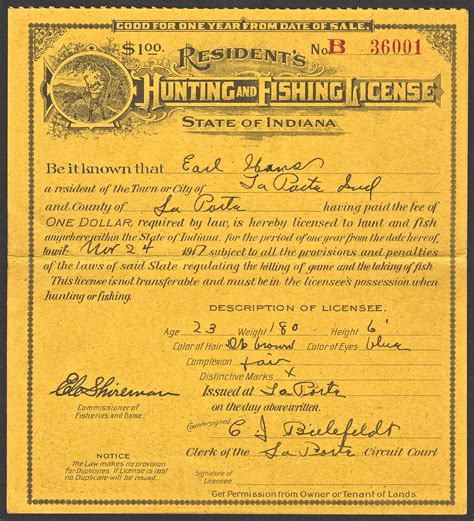 GOOD FOR ONE YEAR FROM DATE OF SALE.
$1.00. RESIDENT'S No. B 36001
HUNTING AND FISHING LICENSE
STATE OF INDIANA
Be it known that Earl
a resident of the Town or City of La Porte Ind
and County of La Porte having paid the fee of
ONE DOLLAR, required by law, is hereby licensed to hunt and fish
anywhere within the State of Indiana, for the period of one year from the date hereof,
to wit: Nov 24 1917 subject to all the provisions and penalties
of the laws of said State regulating the killing of game and the taking of fish.
This license is not transferable and must be in the licensee's possession when
hunting or fishing.
DESCRIPTION OF LICENSEE.
Age 23 Weight 180 Height 6'
Color of Hair Dk brown Color of Eyes blue
Complexion fair
Distinctive Marks x
Issued at La Porte
on the day above written.
Countersigned C J Bielefeldt
Clerk of the La Porte Circuit Court
Signature of
Licensee
Get Permission from Owner or Tenant of Lands.
Shireman
Commissioner of
Fisheries and Game.
NOTICE
The Law makes no provision
for Duplicates. If License is lost
no Duplicate will be issued.